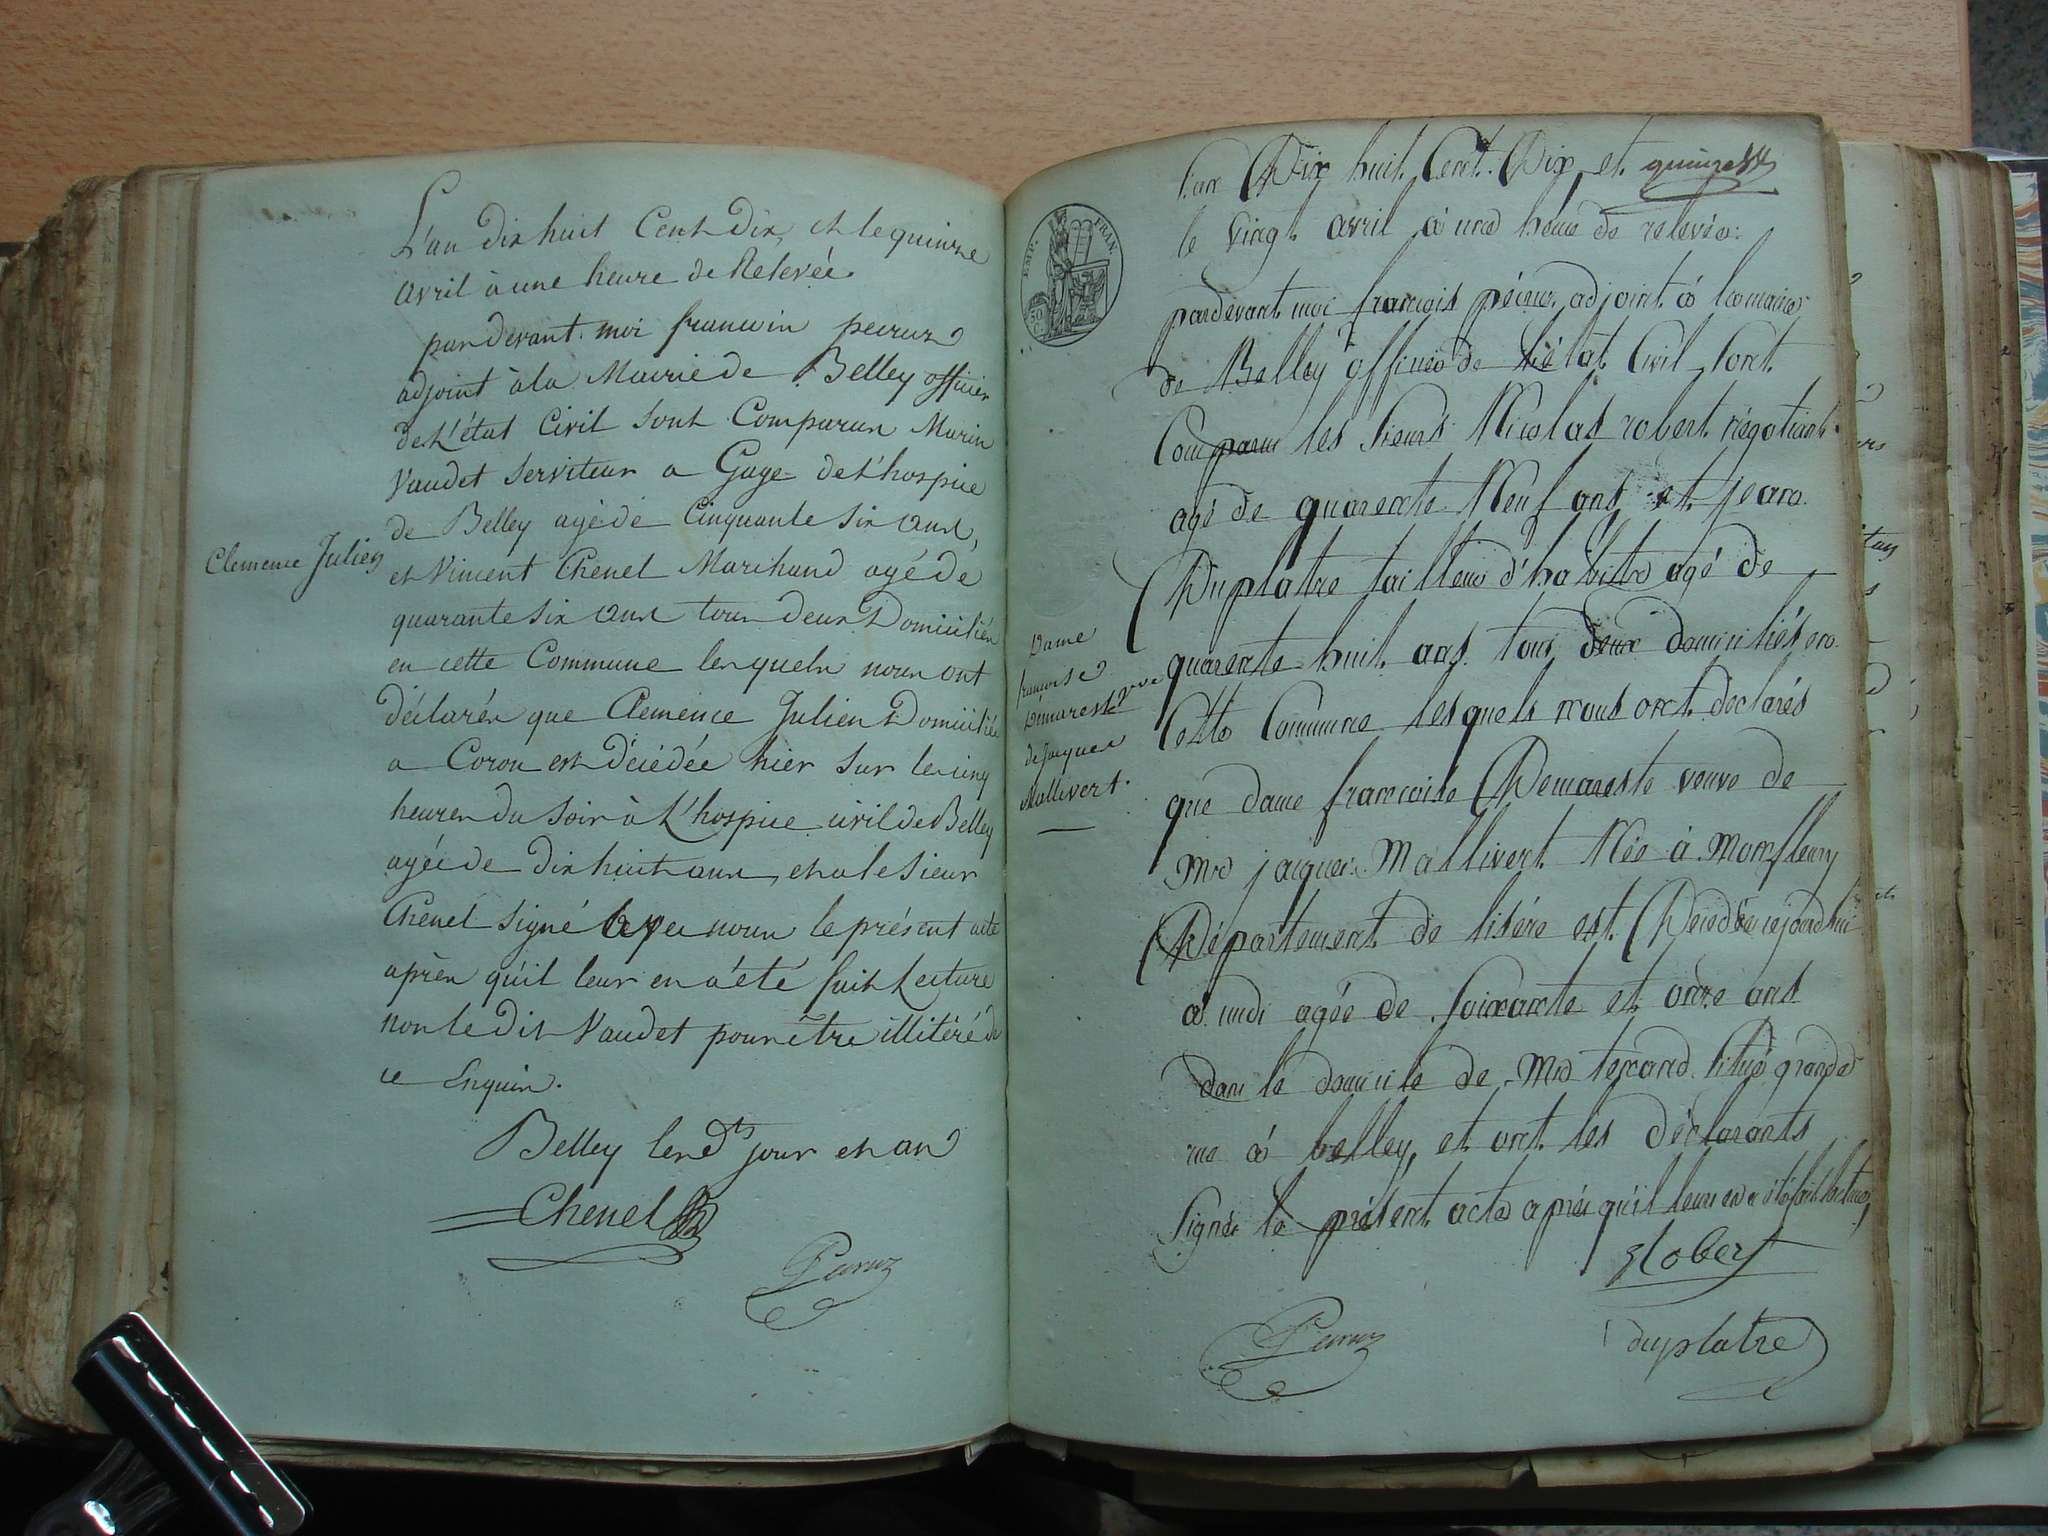 L'an dix huit Cent Dix, et le quinze
avril à une heure de Relevée.
pardevant moi francois peiruz
adjoint à la Mairie de Belley officier
de L'état Civil sont Comparus Marin
Vaudet serviteur a Gage de L'hospice
de Belley agé de Cinquante six ans,
Clemence Julien
et Vincent Chenel Marchand agé de
quarante six ans tous deux Domiciliés
en cette Commune lesquels nous ont
déclarés que Clemence Julien Domiciliée
a Coron est décédée hier sur les cinq
heures du soir à L'hospice civil de Belley
agée de dix huit ans, et a le sieur
Chenel signé avec nous le présent acte
après qu'il leur en a été fait Lecture
non le dit Vaudet pour être illitéré de
ce Enquis.
Belley les dts jour et an
Chenel
Peiruz
EMP. FRAN.
50 C.
l'an Dix huit Cent Dix et quinze
le vingt avril à une heure de relevée.
pardevant moi francois péiruz adjoint à la mairie
de Belley officier de l'état Civil sont
Comparus les sieurs Nicolas robert négotiant
agé de quarente Neuf ans et jean
Duplatre tailleur d'habits agé de
quarente huit ans tous deux domiciliés en
Cette Commune lesquels nous ont déclarés
Dame
francoise
Démareste vve
de Jacques
Mallivert.
que dame francoise Demareste veuve de
Mr jacques Mallivert Née à Monfleury
Département de lisére est Décédée cejourdhui
à midi agée de soixante et onze ans
dans le domicile de Mr tenand situé grande
rue à belley, et ont les déclarants
signés le présent acte après qu'il leur en a été fait lecture
Robert
Peiruz
duplatre